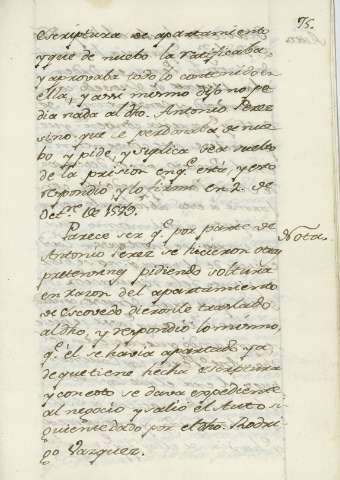 75.
Escriptura de apartamiento
y que de nuebo la ratificaba,
y aprovaba todo lo contenido en
ella, y assi mismo dijo no pe
dia nada al dho. Antonio Perez
sino que le perdonaba de nue
bo y pide, y suplica sea suelto
de la prision en q.e está, y esto
respondió y lo firmó en 2. de
Oct.re de 1589.
Parece ser q.e por parte de
Nota.
Antonio Perez se hicieron otras
pretensin.s pidiendo soltura
en razon del apartamiento
de Escovedo dieronle traslado
al dho, y respondió lo mismo,
q.e él se havia apartado ya
de que tiene hecha escriptura
y con esto se dava expediente
al negocio y salió el Auto si
guiente dado por el dho. Rodri
go Vazquez.